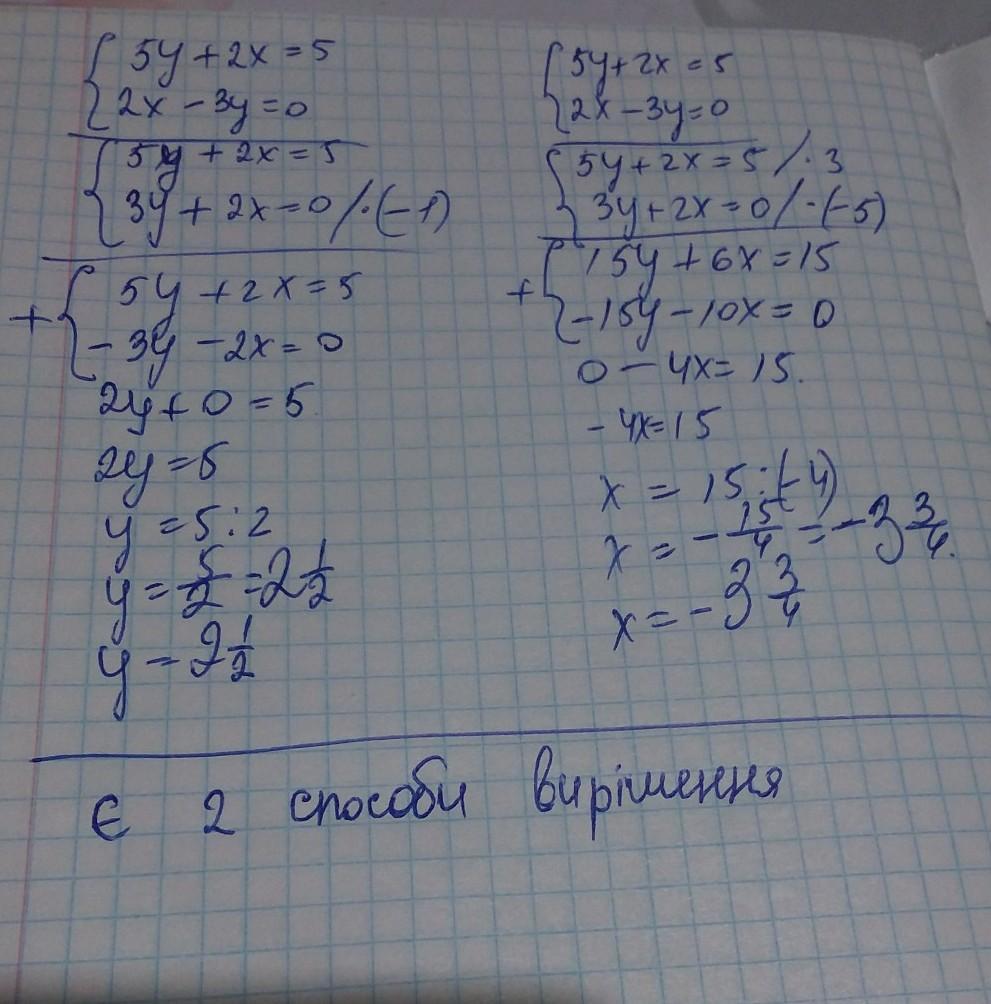 { 5y + 2x = 5
2x - 3y = 0
{ 5y + 2x = 5
3y + 2x = 0 /·(-1)
+ { 5y + 2x = 5
-3y - 2x = 0
2y + 0 = 5
2y = 5
y = 5:2
y = 5/2 = 2 1/2
y = 2 1/2
{ 5y + 2x = 5
2x - 3y = 0
{ 5y + 2x = 5 /·3
3y + 2x = 0 /·(-5)
+ { 15y + 6x = 15
-15y - 10x = 0
0 - 4x = 15.
-4x = 15
x = 15:(-4)
x = - 15/4 = -3 3/4.
x = -3 3/4
Є 2 способи вирішення